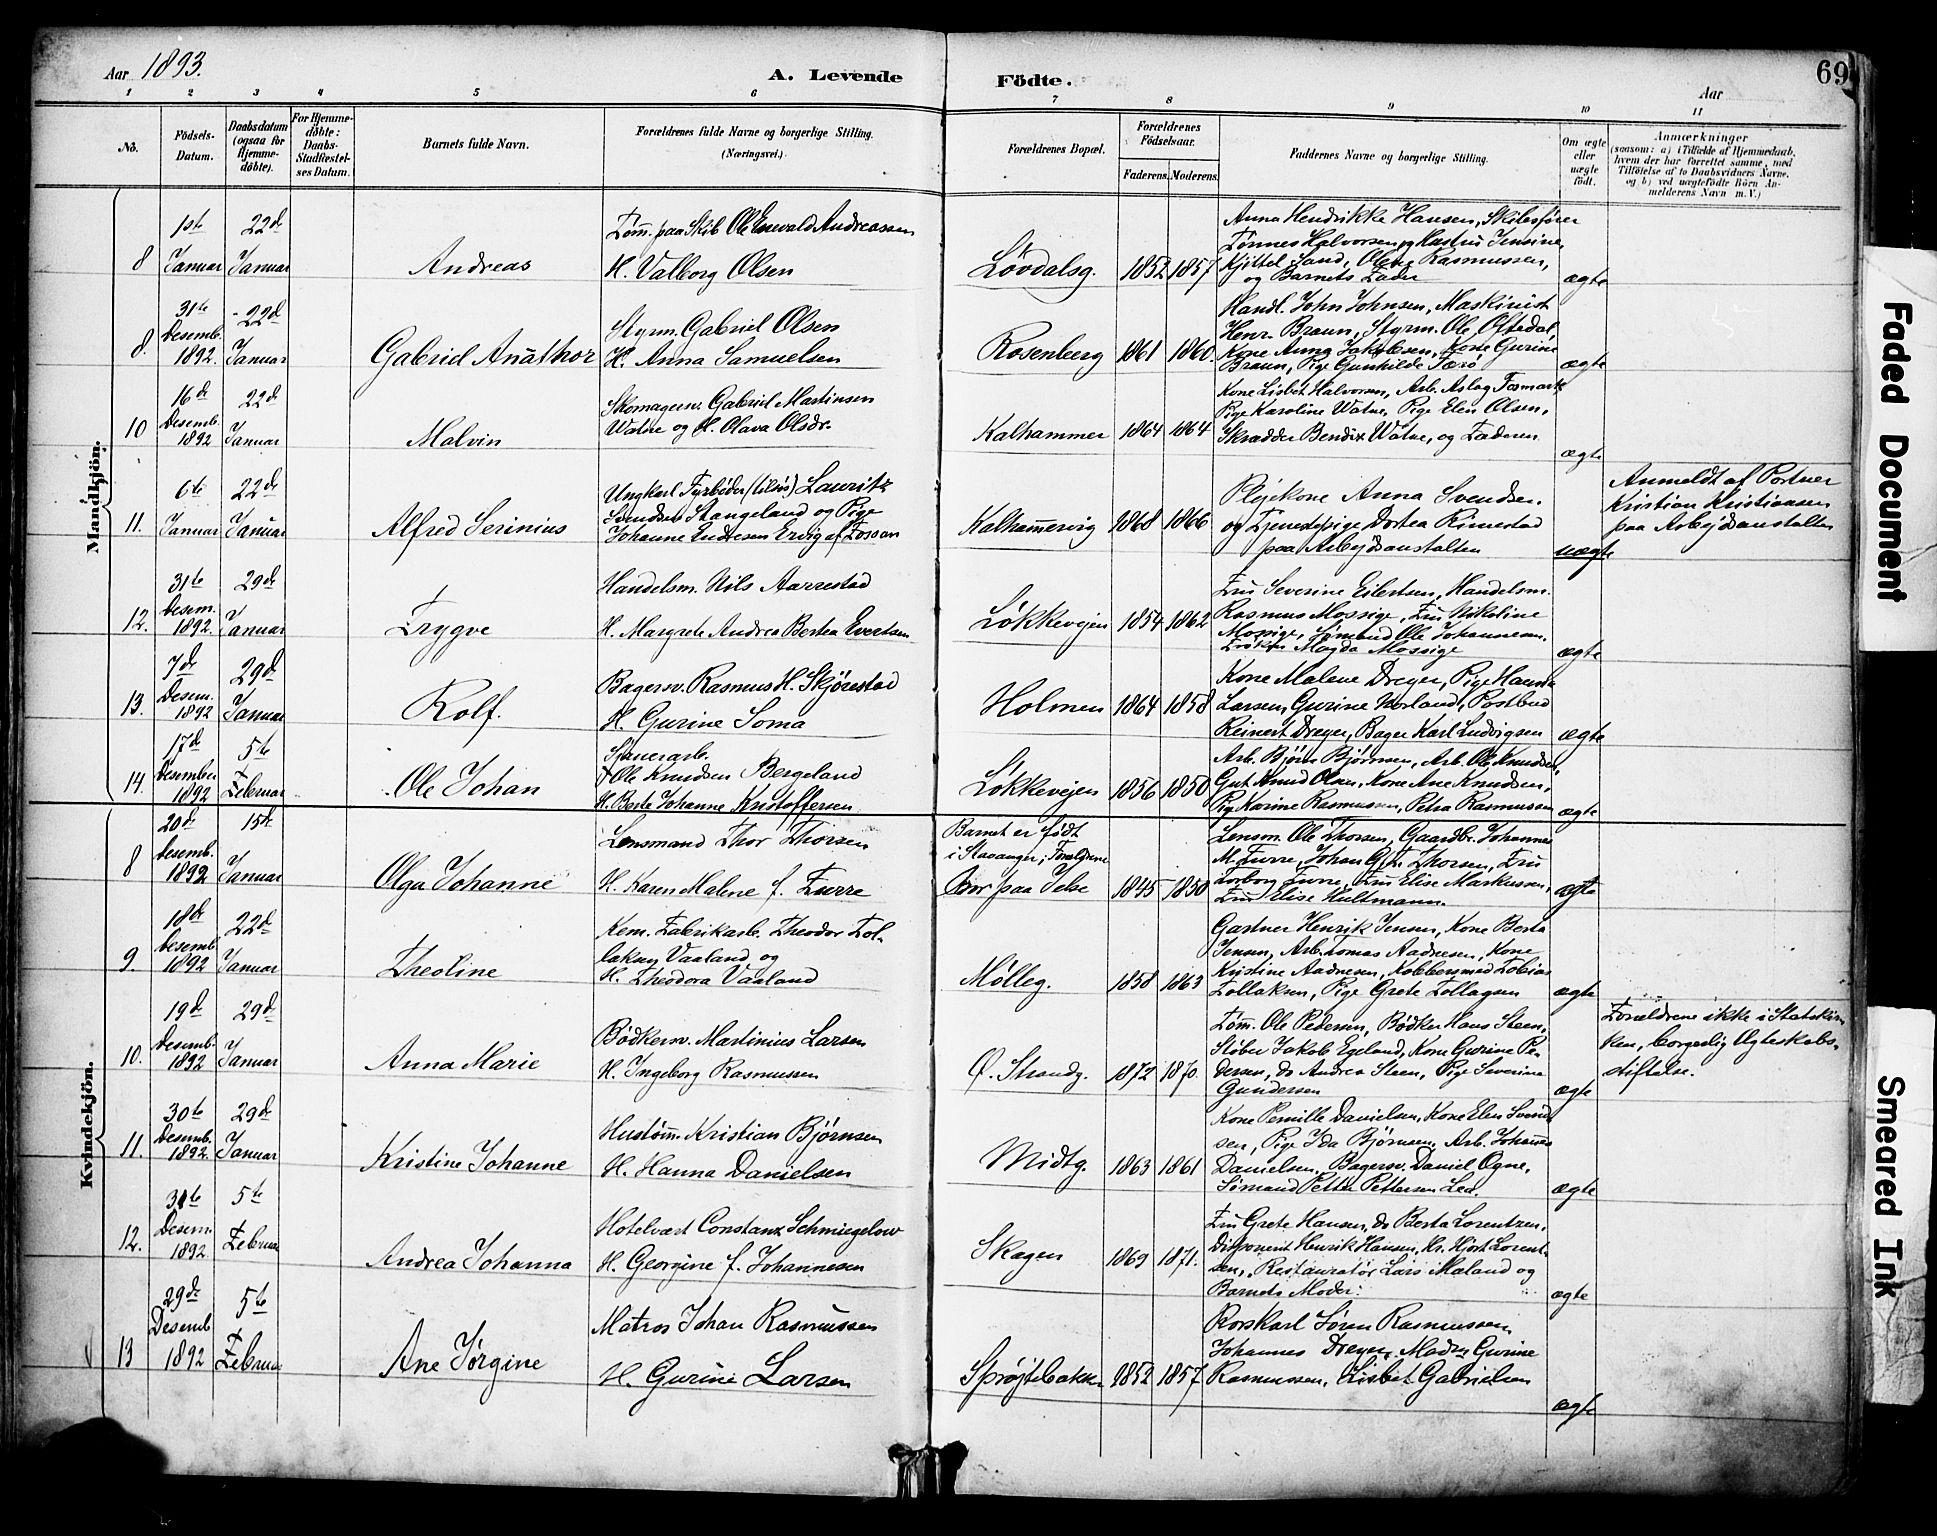 Aar 1893.
A. Levende Födte.
69
Aar
1 2 3 4 5 6 7 8 9 10 11
No.
Födsels-Datum.
Daabsdatum (ogsaa for Hjemmedøbte).
For Hjemmedøbte: Daabs-Stadfæstelses Datum.
Barnets fulde Navn.
Forældrenes fulde Navne og borgerlige Stilling. (Næringsvei.)
Forældrenes Bopæl.
Forældrenes Födselsaar.
Faderens. Moderens.
Faddernes Navne og borgerlige Stilling.
Om ægte eller uægte födt.
Anmærkninger (saasom: a) i Tilfælde af Hjemmedaab, hvem der har forrettet samme, med Tilföielse af to Daabsvidners Navne, og b) ved uægtefödte Börn Anmelderens Navn m.V.)
Mandkjön.
8
1ste Januar
22de Januar
Andreas
Tømm. paa Skib Ole Enevald Andreassen
H. Valborg Olsen
Løvdalsg.
1852 1857
Anna Hendrikke Hansen, Skibsfører
Tønnes Halvorsen og Hustru Jensine,
Kjittel Sand, Olene Rasmussen,
og Barnets Fader
ægte
8.
31te Desemb. 1892.
22de Januar
Gabriel Anathor
Styrm. Gabriel Olsen
H. Anna Samuelsen
Rosenberg
1861 1860.
Handl. John Johnsen, Maskinist
Henr. Braun, Styrm. Ole Oftedal
Kone Anna Jakobsen, Kone Gurine
Braun, Pige Gunhilde Færø
ægte
10
16de Desemb. 1892
22de Januar
Malvin
Skomagersv. Gabriel Martinsen
Watne og H. Olava Olsdr.
Kalhammer
1864 1864
Kone Lisbet Halvorsen, Arb. Aslag Fosmark,
Pige Karoline Watne, Pige Elen Olsen,
Skrædder Bendix Watne, og Faderen
ægte
11.
6te Januar
22de Januar
Alfred Serinius
Ungkarl Fyrbøder (tilsøs) Lauritz
Svendsen Stangeland og Pige
Johanne Endresen Ervig af Fossan
Kalhammervig
1868 1866
Plejekone Anna Svendsen
og Tjenestepige Dortea Rimestad
paa Arbejdsanstalten
uægte
Anmeldt af Portner
Kristian Kristiansen
paa Arbejdsanstalten
12.
31te Desem. 1892.
29de Januar
Trygve
Handelsm. Nils Aarrestad
H. Margrete Andrea Bertea Evertsen
Løkkevejen
1854 1862
Fru Severine Eilertsen, Handelsm.
Rasmus Mossige, Fru Nikoline
Mossige, Sømand Ole Johannesen.
Frøken Magda Mossige
ægte
13.
7de Desem. 1892
29de Januar
Rolf.
Bagersv. Rasmus H. Skjørestad
H. Gurine Soma
Holmen
1864 1858
Kone Malene Dreyer, Pige Hansa
Larsen, Gurine Norland, Postbud
Reinert Dreyer, Bager Karl Ludvigsen
ægte
14.
17de Desember 1892
5te Februar
Ole Johan
Sjauerarb.
Ole Knudsen Bergeland
H. Berte Johanne Kristoffersen
Løkkevejen
1856 1850
Arb. Bjørn Bjørnsen, Arb. Ole Knudsen,
Gut Knud Olsen, Kone Ane Knudsen,
Pige Karine Rasmussen, Petra Rasmussen
ægte
Kvindekjön.
8
20de Desemb. 1892
15de Januar
Olga Johanne
Lensmand Thor Thorsen
H. Karen Malene f. Furre
Barnet er født
i Stavanger; Forældrene
Bor paa Jelse
1845 1850
Lensm. Ole Thorsen, Gaardbr. Johannes
M. Furre, Johan G. Thorsen, Fru
Torborg Furre, Fru Elise Markussen,
Fru Elise Hultmann.
ægte
9.
18de Desemb. 1892
22de Januar
Theoline
Kem. Fabrikarb. Theodor Tol-
laksen Vaaland og
H. Theodora Vaaland
Mølleg.
1858 1863
Gartner Henrik Jensen, Kone Berta
Jensen, Arb. Tomas Aadnesen, Kone
Kristine Aadnesen, Kobbersmed Tobias
Tollaksen, Pige Grete Tollagsen
ægte
10.
19de Desemb. 1892
29de Januar
Anna Marie
Bødkersv. Martinius Larsen
H. Ingeborg Rasmussen
Ø. Strandg.
1872 1870.
Tømm. Ole Pedersen, Bødker Hans Steen,
Støber Jakob Egeland, Kone Gurine Pe-
dersen, do Andrea Steen, Pige Severine
Gundersen
ægte
Forældrene ikke i Statskir-
ken, borgerlig Ægteskabs-
stiftelse.
11.
30te Desemb. 1892.
29de Januar
Kristine Johanne
Hustømm. Kristian Bjørnsen
H. Hanna Danielsen
Midtg.
1863 1861
Kone Pernille Danielsen, Kone Elen Svend-
sen, Pige Ida Bjørnsen, Arb. Johannes
Danielsen, Bagersv. Daniel Ogne,
Sømand Petter Pettersen Lea.
ægte
12.
31te Desem. 1892
5te Februar
Andrea Johanna
Hotelvært Constanz Schmiegelow
H. Georgine f. Johannesen
Skagen
1869 1871.
Fru Grete Hansen, do Berta Lorentzen,
Disponent Henrik Hansen, Hr. Hjort Lorent-
sen, Restauratør Lars Maland og
Barnets Moder.
ægte
13
29de Desemb 1892
5te Februar
Ane Jørgine
Matros Johan Rasmussen
H. Gurine Larsen
Sprøjtebakken
1852 1857
Rorskarl Søren Rasmussen,
Johannes Dreyer, Gurine
Rasmussen, Lisbet Gabrielsen
ægte
Faded Document
Smeared Ink